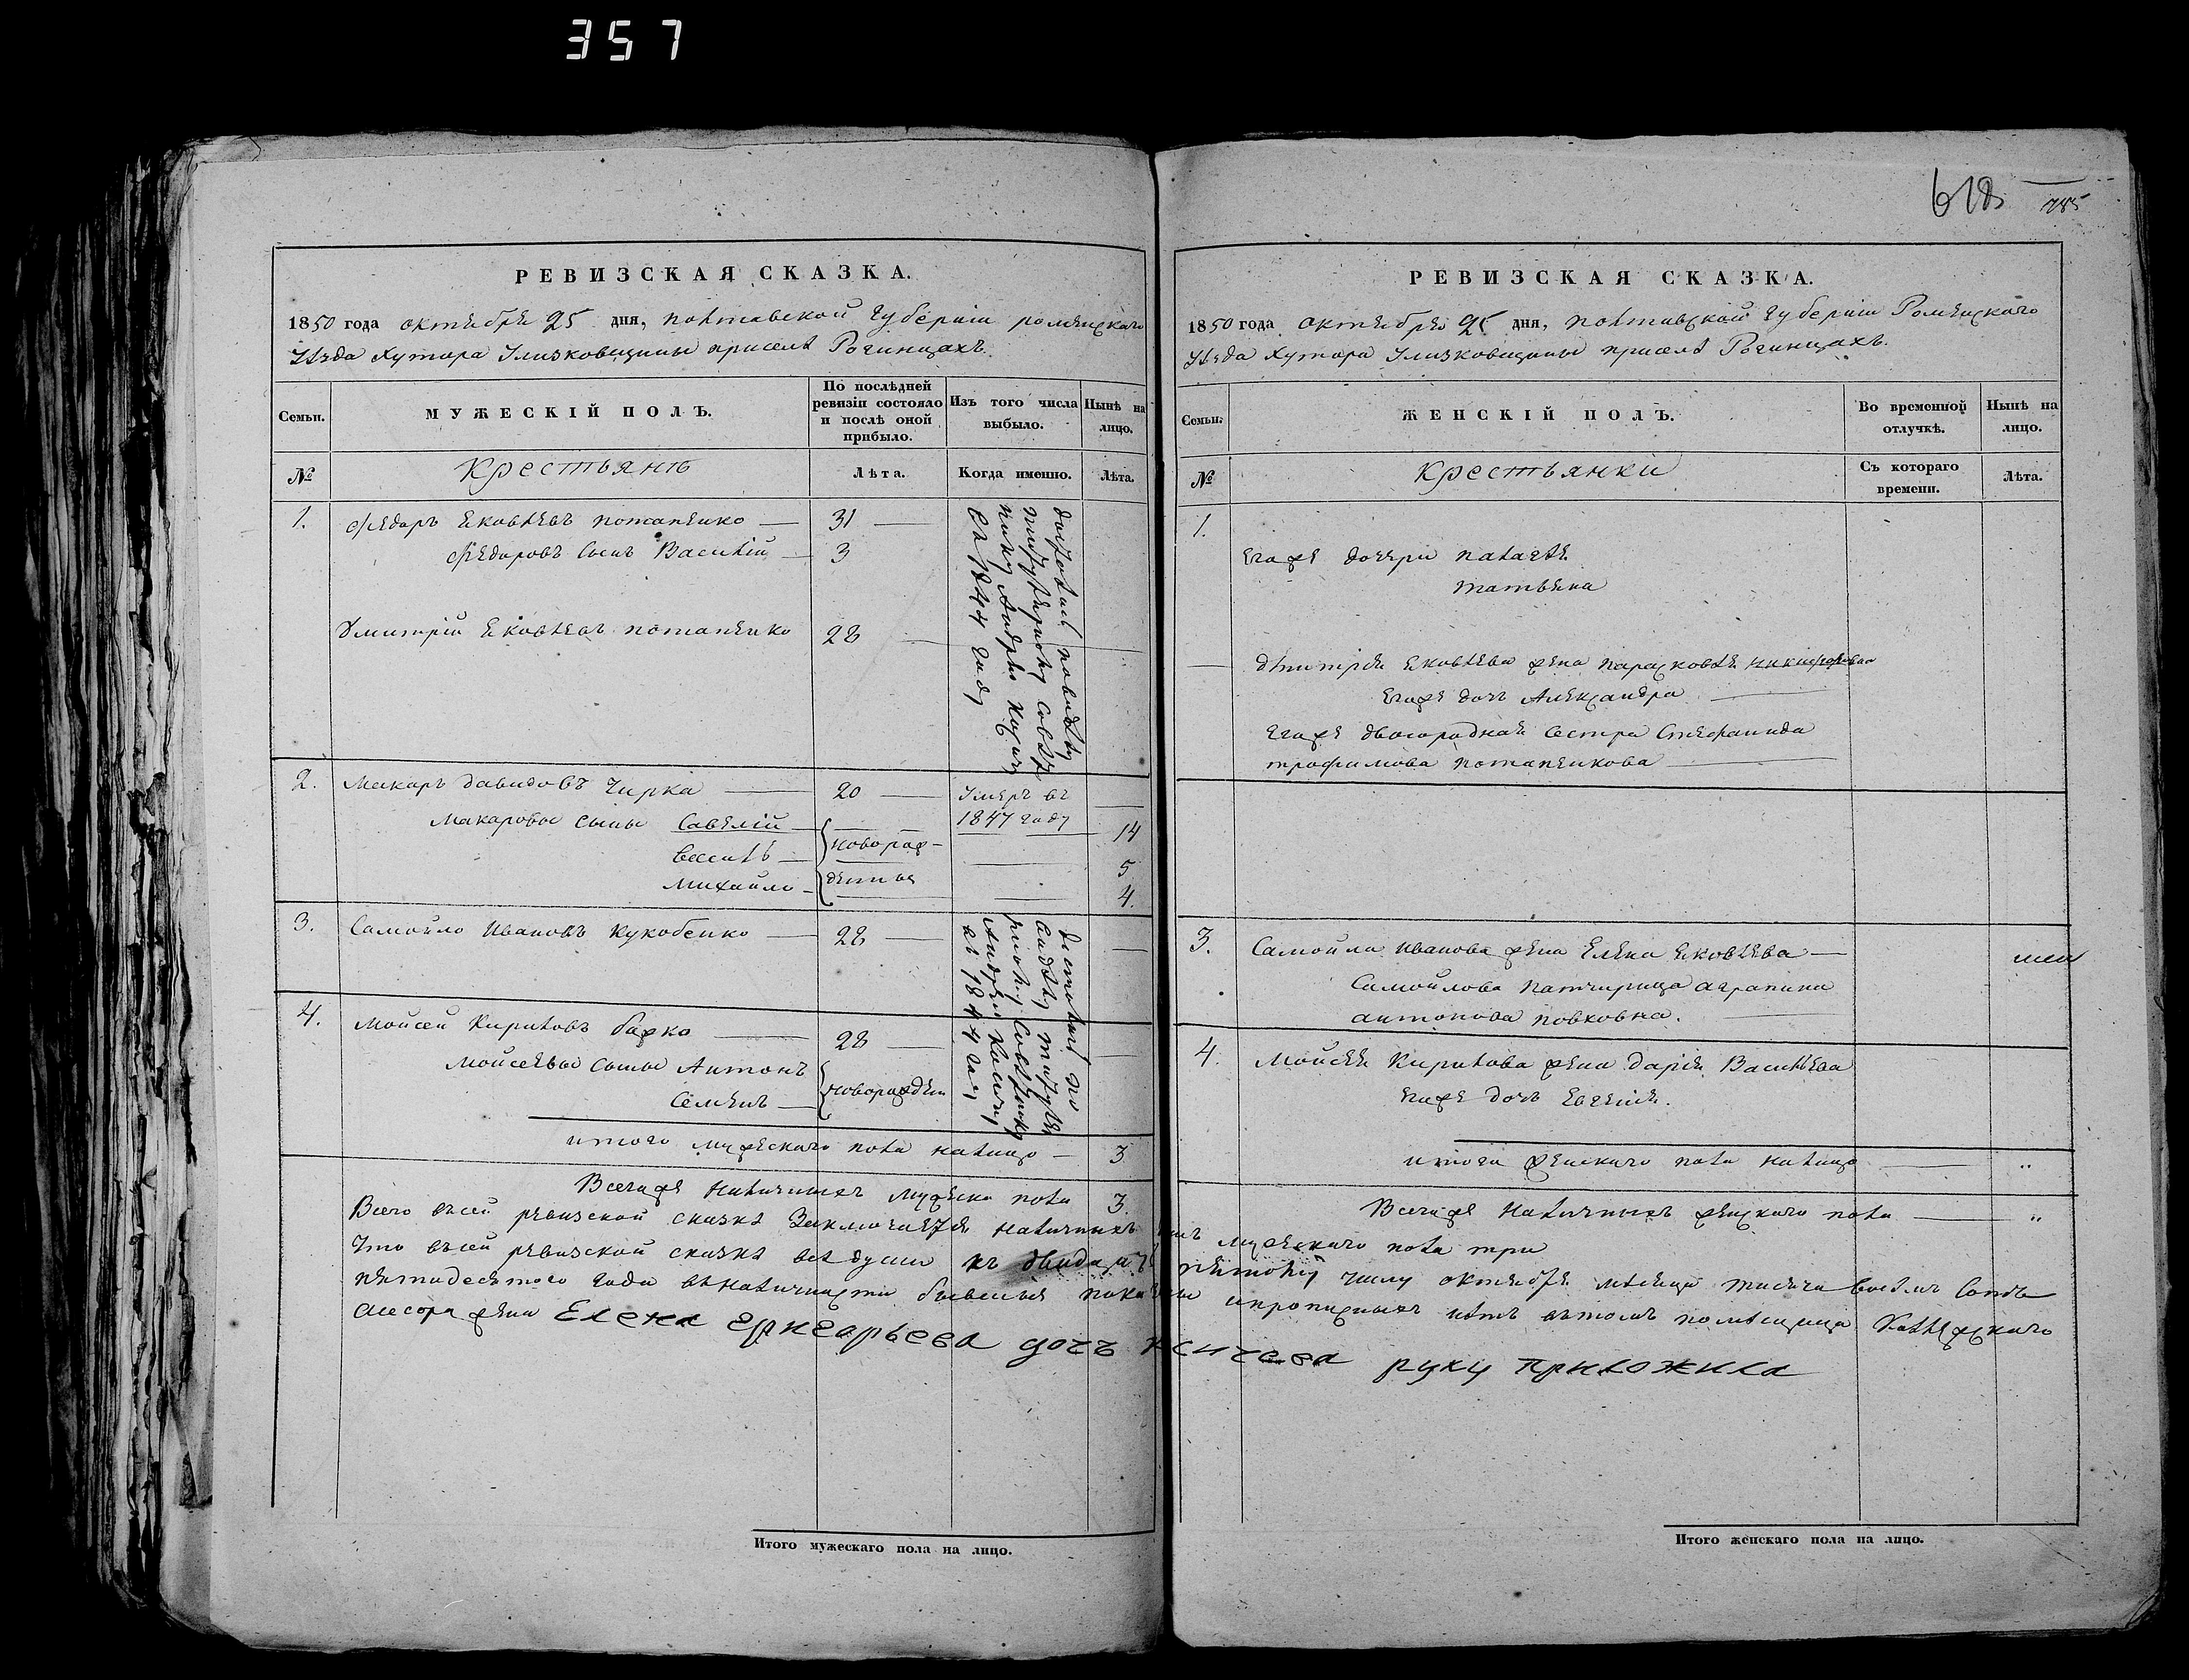 357
618
785
РЕВИЗСКАЯ СКАЗКА.
1850 года октября 25 дня, полтавской губерніи роменскаго
уѣзда хутора Улизковщины приселѣ Рогинцахъ.
Семьи.
МУЖЕСКІЙ ПОЛЪ.
По послѣдней ревизіи состояло и послѣ оной прибыло.
Изъ того числа выбыло.
Нынѣ на лицо.
№
Крестьянѣ
Лѣта.
Когда именно.
Лѣта.
1. Федоръ Яковлевъ потапенко — 31 —
Федоровъ сынъ Василій — 3
Дмитрій Яковлевъ потапенко 28
въ 1844 году
2. Макаръ давидовъ Чирка — 20 — Умеръ въ
1847 году
Макаровы сыны Савелій — 14
новорож-
василь — 5
денныя
Михайло — 4.
3. Самойло Ивановъ Кукобенко — 28 —
4. Мойсей Кириловъ божко — 28 —
Мойсеевы сыны Антонъ
новорожден
Семенъ —
въ 1844 году
итого мужескаго пола налицо — 3
Всегоже наличныхъ мужеска пола 3.
РЕВИЗСКАЯ СКАЗКА.
1850 года октября 25 дня, полтавской губерніи Роменскаго
уѣзда хутора Улизковщины приселѣ Рогинцахъ.
Семьи.
ЖЕНСКІЙ ПОЛЪ.
Во временной отлучкѣ.
Нынѣ на лицо.
№
Крестьянки
Съ котораго времени.
Лѣта.
1.
Егоже дочери палагѣя
татьяна
— дмитрія Яковлева жена парасковѣя никифорова
Егоже дочь Александра —
Егоже двоюродная сестра Стефанида
трофимова потапенкова —
3. Самойла Иванова жена Елена Яковлева —
Самойлова аграпина
антонова
4. Мойсея Кирилова жена Дарія Васильева
Егоже дочь Евгенія.
итого женскаго пола налицо — "
Всегоже наличныхъ женскаго пола — "
Всего въсей ревизской сказкѣ Заключается наличныхъ мужескаго пола три
Что въсей ревизской сказкѣ всѣ души къ двадцать пятому числу октября мѣсяца тысяча восемъ сотъ
пятидесятого года въналичности бывшыя показаны ипрописныхъ нѣтъ вътомъ помѣщица
асесора жена Елена Григорьева дочь руку приложила
Итого мужескаго пола на лицо.
Итого женскаго пола на лицо.